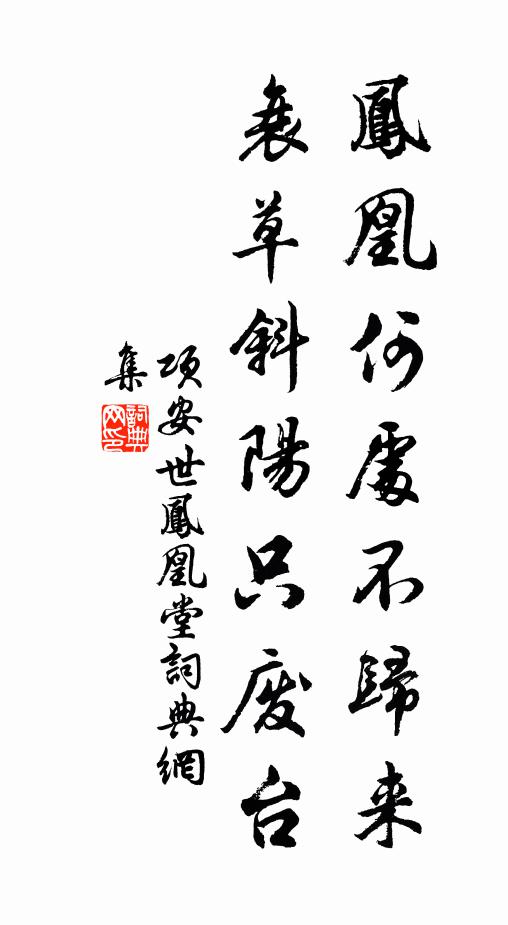 鳳凰何處不歸来
衰草斜陽只廢台
項安世鳳凰堂詞典網
集
詞典网印